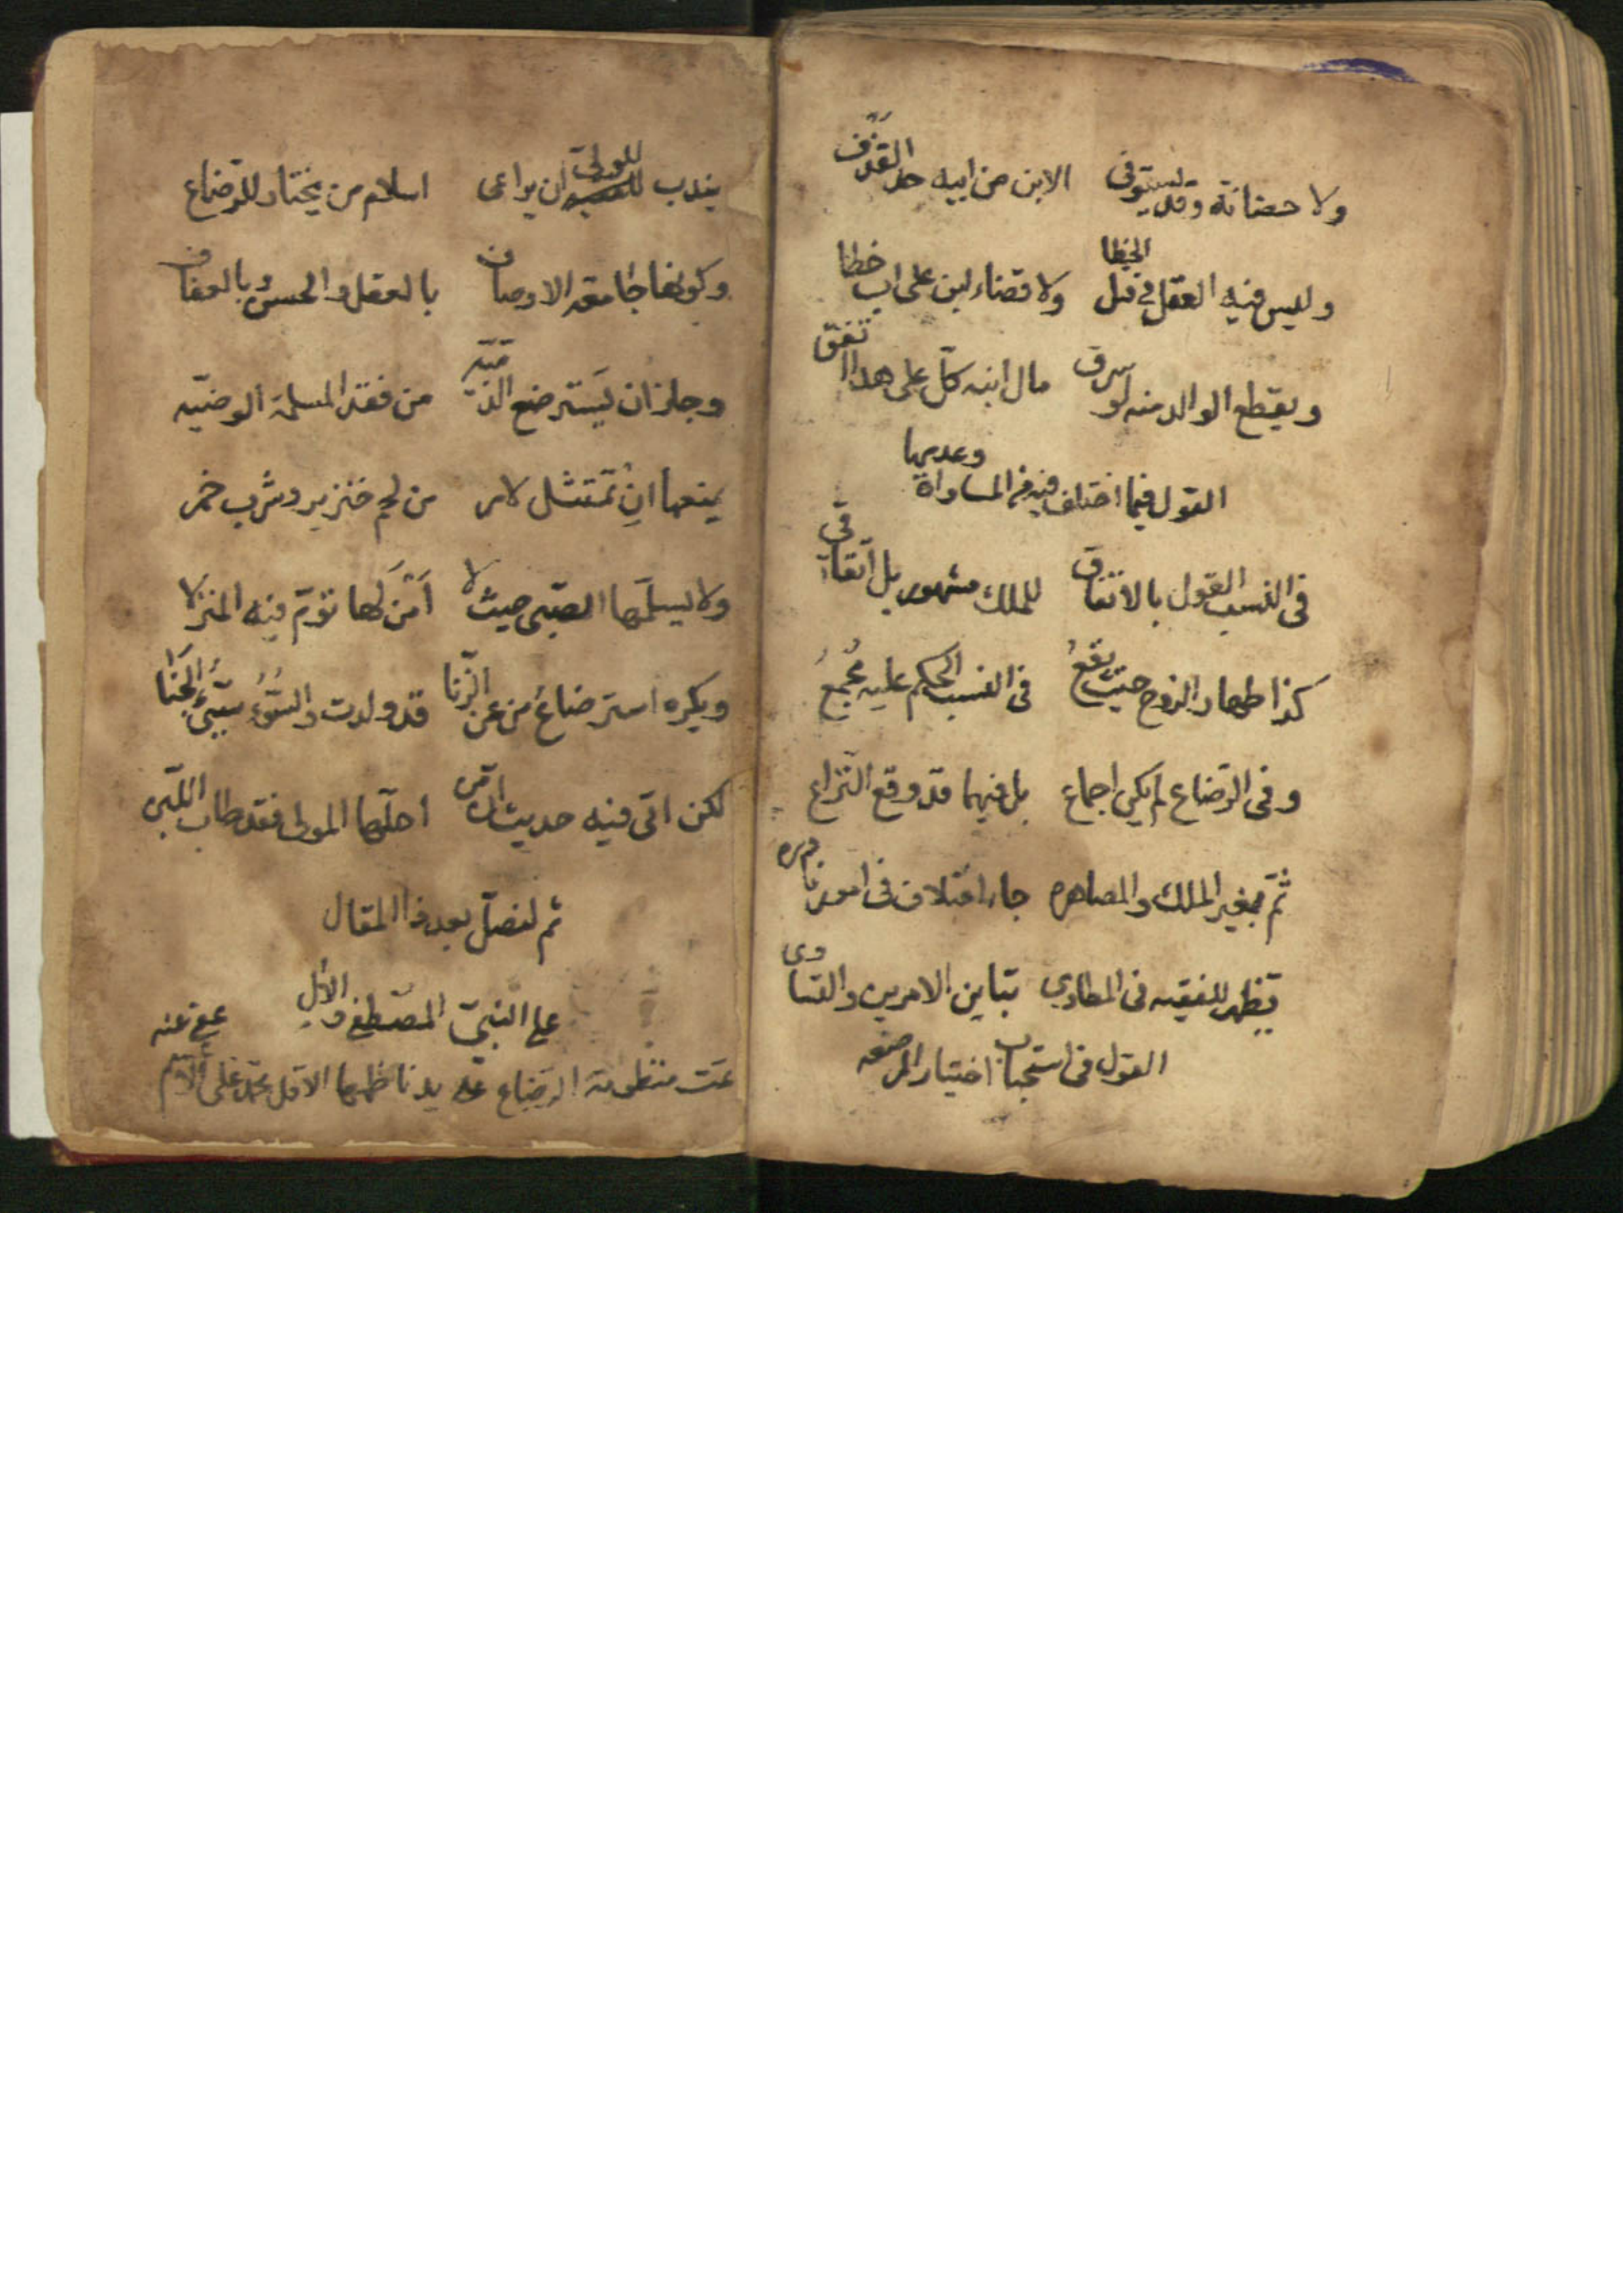 ولا حضانة وقد يستوفى الابن من ابيه حد القذف
وليس فيه العقل في قتل الخطا ولا قضاء ابن على اب خطا
ويقطع الوالد منه لو سرق مال ابنه كل على هذا اتفق
القول فيما اختلف فيه في المساواة وعدمها
فى النسب القول بالاتفاق للملك مشهور بل اتفاقى
كذا ظهار الزوج حيث يقعُ فى النسب الحكم عليه مُجمعُ
وفى الرّضاع لم يكن اجماع بل فيهما قد وقع النّزاع
ثمّ بغير الملك والمصاهره جاء اختلاف فى امور نادره
تظهر للفقيه فى المطاوي تباين الامرين والفتاوى
القول فى استحباب اختيار المرضعه
يندب للولىّ ان يراعى اسلام من يختار للرّضاع
وكونها جامعة الاوصاف بالعقل والحسن وبالعفاف
وجاز ان يَسترضع الذّمّيّه من فقد المسلمة الوضيّه
يمنعها ان تمتثل لامر من لحم خنزير وشرب خمر
ولا يسلّمها الصّبى حيث لا اَمْنَ لها تؤمّ فيه المنزلا
ويكره استرضاعُ من عن الزّنا قد ولدت والسُّوءُ سَيّئُ الجَنا
لكن اتى فيه حديث ان من احلّها المولى فقد طاب اللّبن
ثم لنصلّ بعد ذا المقال
على النبىّ المصطفى والآلِ
تمت منظومة الرّضاع على يد ناظمها الاقل محمّد على عفى عنه